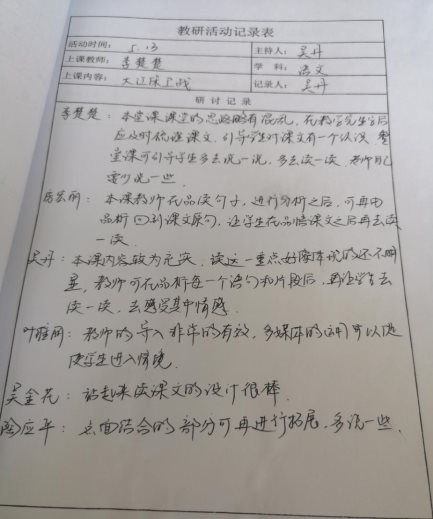 教研活动记录表
活动时间： 5.13 主持人： 吴丹
上课教师： 李楚楚 学 科： 语文
上课内容： 记录人： 吴丹
研 讨 记 录
李楚楚：本堂课课堂的思路略有混乱，在教学完生字后
应及时梳理课文，引导学生对课文有一个认识，整
堂课可引导学生多去说一说，多去读一读，老师自己
要少说一些．
本课教师在品读句子，进行分析之后，可再由
品析回到课文原句，让学生在品悟课文之后再去读
一读．
吴丹：本课内容较为充实，读这一重点好像体现的还不明
显，教师可在品析每一个语句和片段后，再让学生去
读一读，去感受其中情感．
叶雅丽：教师的导入非常的有效，多媒体的运用可以促
使学生进入情境．
吴金花：站起来读课文的设计很棒．
应平：点面结合的部分可再进行拓展，多说一些．